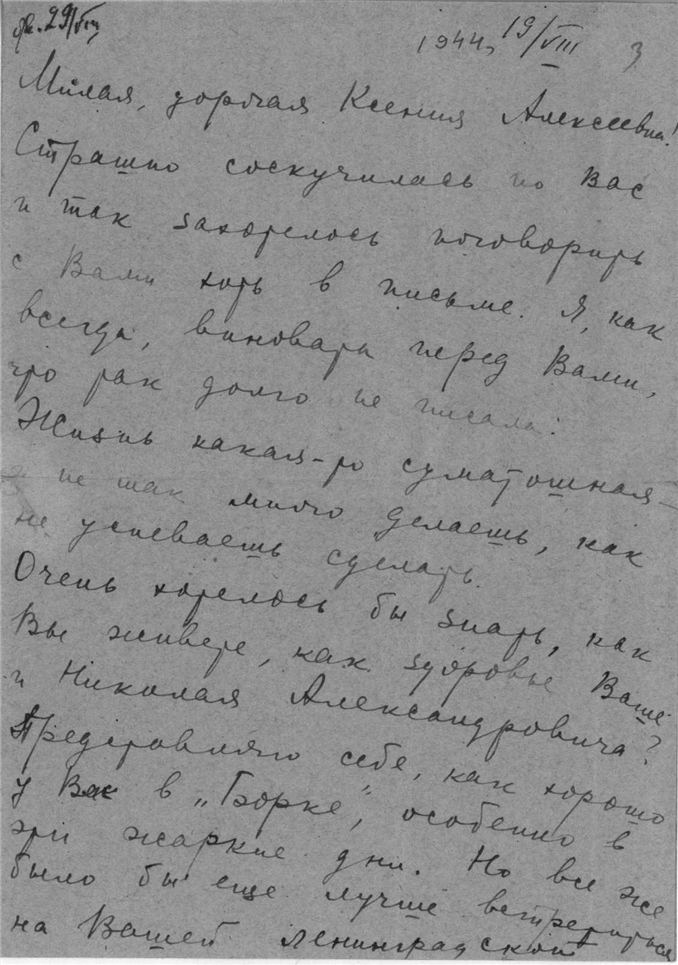 29/VIII
1944, 19/VIII 3
Милая, дорогая Ксения Алексеевна!
Страшно соскучилась по Вас
и так захотелось поговорить
с Вами хоть в письме. Я, как
всегда, виновата перед Вами,
что так долго не писала.
Жизнь какая-то суматошная –
и не так много делаешь, как
не успеваешь сделать.
Очень хотелось бы знать, как
Вы живете, как здоровье Ваше
и Николая Александровича?
Представляю себе, как хорошо
у Вас в „Борке“, особенно в
эти жаркие дни. Но все же
было бы еще лучше встретиться
на Вашей ленинградской